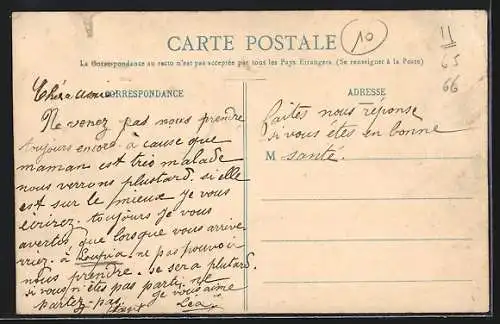 CARTE POSTALE
10
11
65
66
La Correspondance au recto n'est pas acceptée par tous les Pays Etrangers. (Se renseigner à la Poste)
CORRESPONDANCE
ADRESSE
Chère amie
Ne venez pas nous prendre
toujours encore à cause que
maman est très malade
nous verrons plustard. si elle
est sur le mieux je vous
écrirez. toujours je vous
avertes que lorsque vous arrive
rriez à Loupia ne pas pouvoir
nous prendre. se sera plutard.
si vous n'êtes pas parti ne
partez pas. je vous aime
Léa
faites nous réponse
si vous êtes en bonne
M santé.